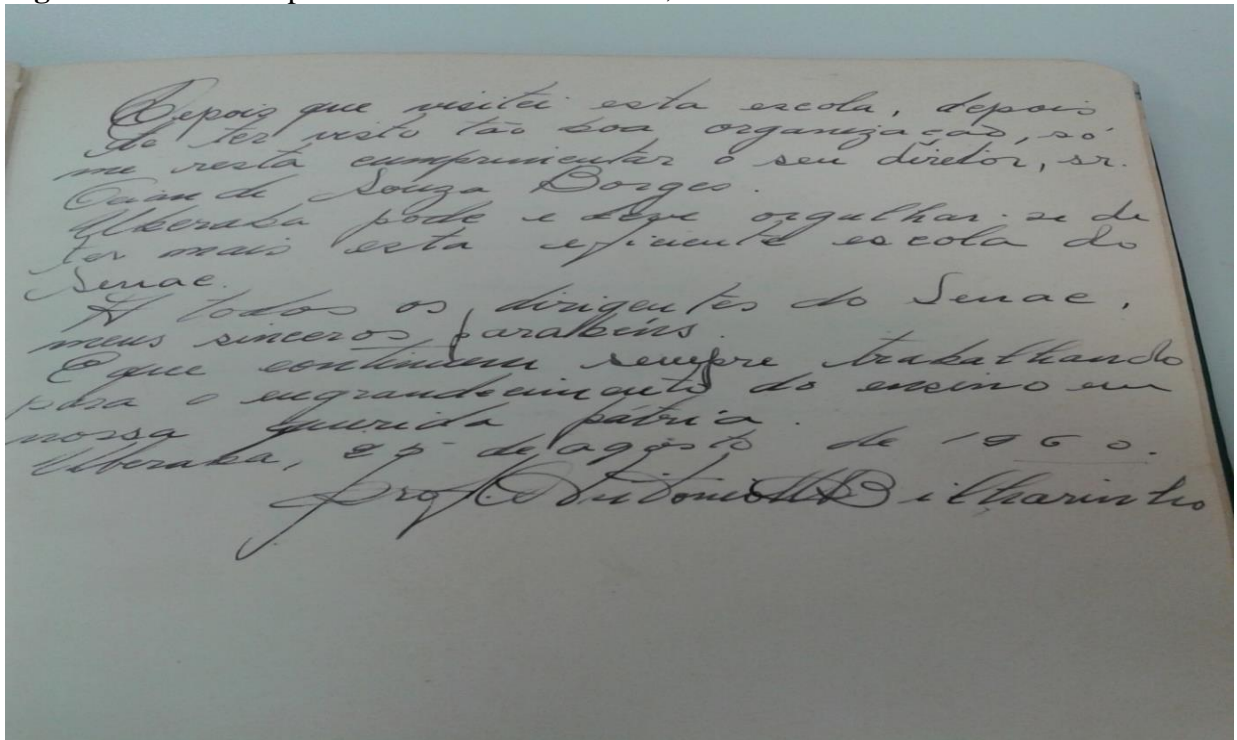 Depois que visitei esta escola, depois
de ter visto tão boa organização, só
me resta cumprimentar o seu diretor, sr.
de Souza Borges.
Uberaba pode e deve orgulhar-se de
ter mais esta eficiente escola do
Senac.
A todos os dirigentes do Senac,
meus sinceros parabéns.
E que continuem sempre trabalhando
para o engrandecimento do ensino em
nossa querida pátria.
Uberaba, 25 de agôsto de 1960.
Prof. Antonio Bilharinho